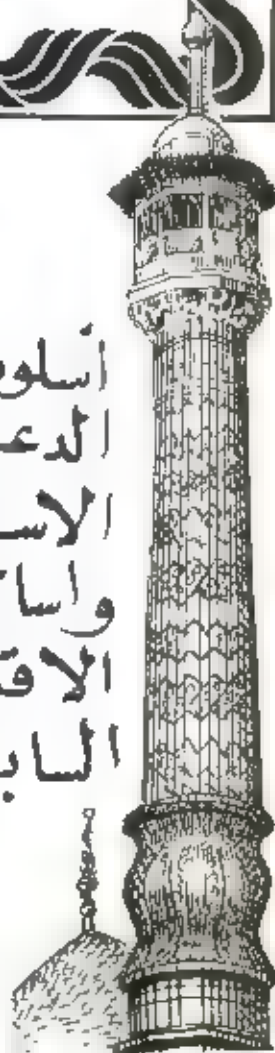 أسلو
الدع
الاس
واسا
الاق
الساب